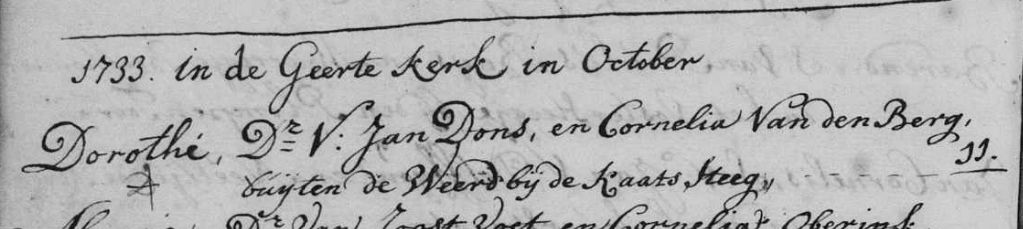 1733. in de Geerte kerk in October
Dorothé, Dr V: Jan Dons, en Cornelia Van den Berg,
buyten de Weerd bÿ de Kaats Steeg,
11.
Dr Van Joost Voet en Cornelia Oberink